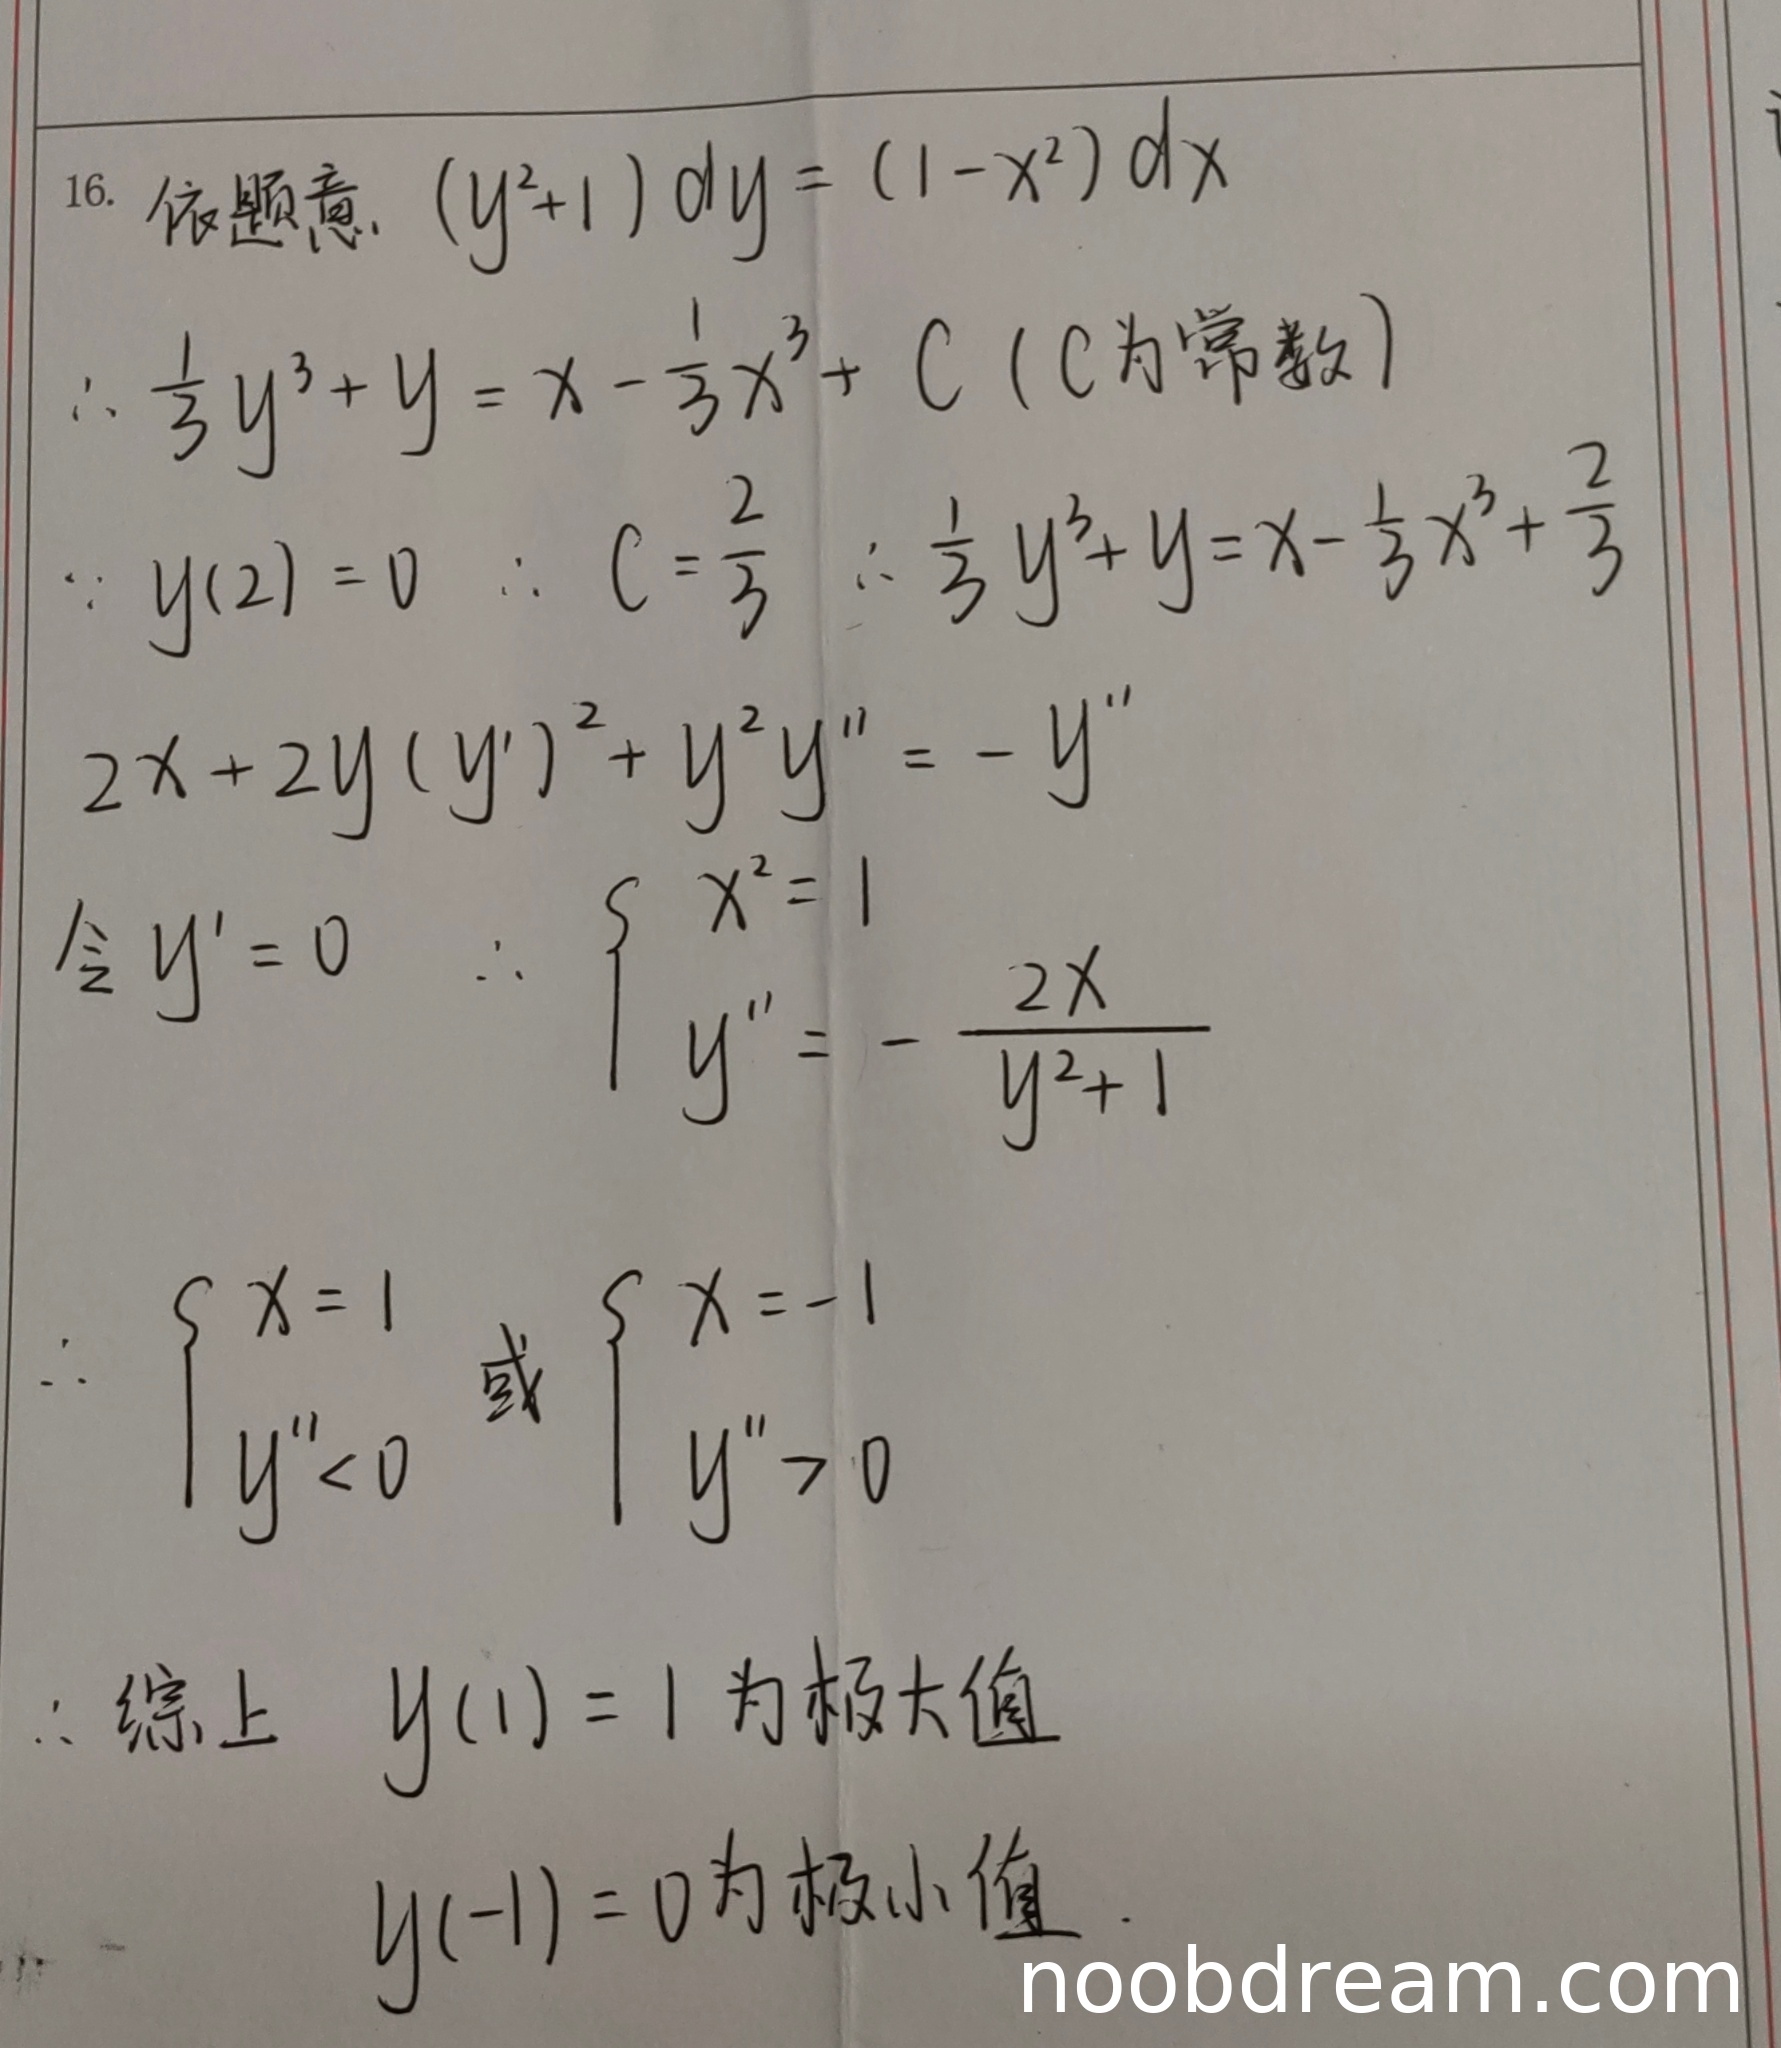 16. 依题意, (y²+1) dy = (1-x²) dx
∴ 1/3 y³ + y = x - 1/3 x³ + C (C为常数)
∵ y(2) = 0 ∴ C = 2/3 ∴ 1/3 y³ + y = x - 1/3 x³ + 2/3
2x + 2y(y')² + y² y'' = - y''
令 y' = 0 ∴ { x² = 1
y'' = - 2x/(y²+1)
∴ { x = 1 或 { x = -1
y'' < 0 y'' > 0
∴ 综上 y(1) = 1 为极大值
y(-1) = 0 为极小值.
noobdream.com